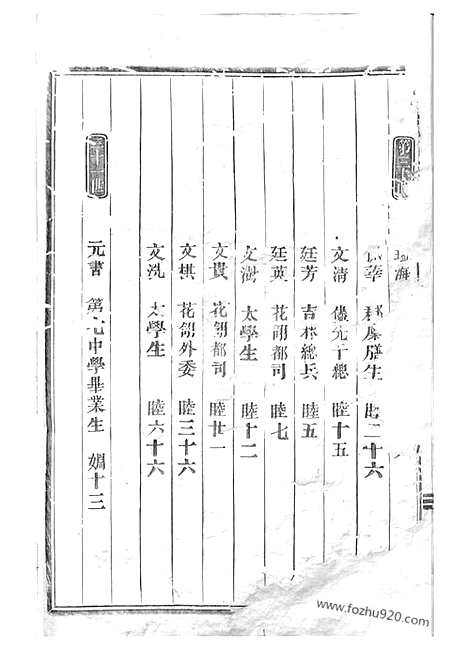 海
華 廩膳生 二十六
文清 儘先千總 睦十五
廷芳 吉林總兵 睦五
廷英 花翎都司 睦七
文澍 太學生 睦十二
文貴 花翎都司 睦廿一
文棋 花翎外委 睦三十六
文洗 太學生 睦六十六
元書 第九中學畢業生 嫺十三
www.fozhu920.com